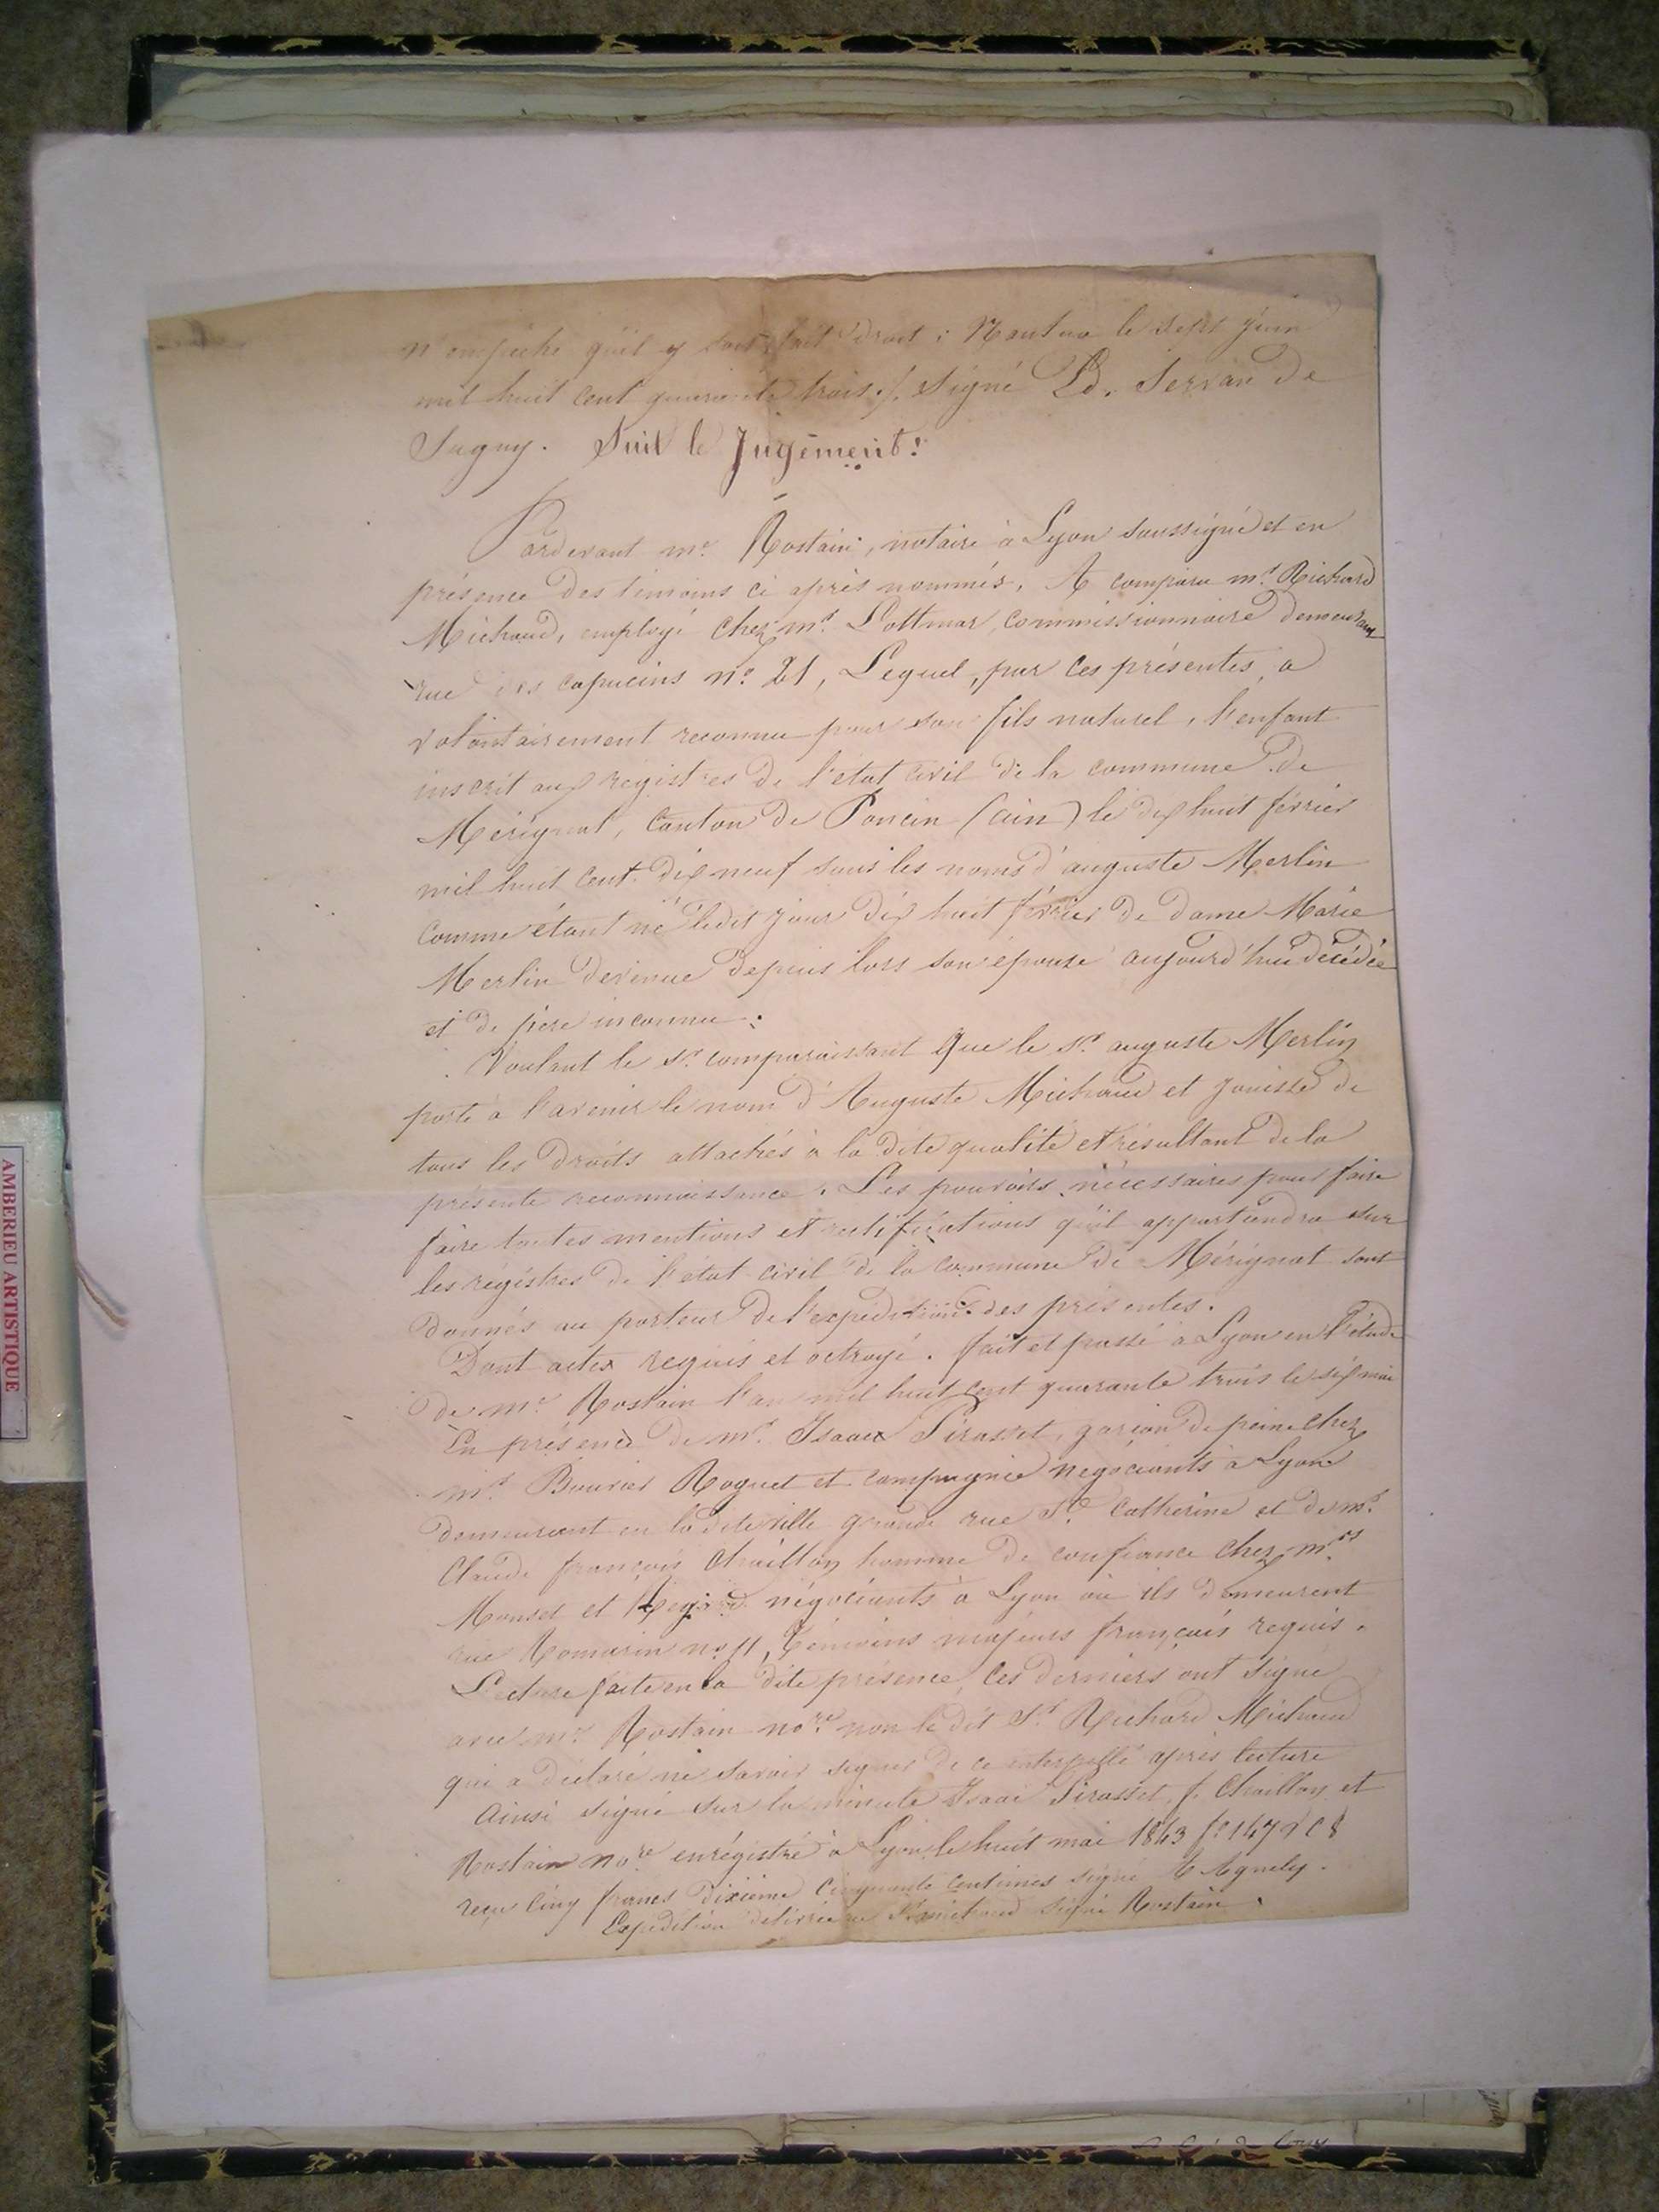 n'empêche qu'il y soit fait droit : Nantua le sept juin
mil huit cent quarante trois ./. signé Ed. Servan de
Sugny. Suit le Jugement :
Pardevant me. Rostain, notaire à Lyon soussigné et en
présence des témoins ci après nommés. A comparu mr. Richard
Michaud, employé chez mr. Lottmar, commissionnaire demeurant
rue des capucins no. 21, Lequel, par ces présentes, a
volontairement reconnu pour son fils naturel, l'enfant
inscrit aux régistres de l'état civil de la commune de
Mérignat, Canton de Poncin (ain) le dix huit février
mil huit cent dix neuf sous les noms d'auguste Merlin
comme étant né ledit jour dix huit février de dame Marie
Merlin devenue depuis lors son épouse aujourd'hui décédée
et de père inconnu :
Voulant le sr. comparaissant que le sr. auguste Merlin
porte à l'avenir le nom d'Auguste Michaud et jouisse de
tous les droits attachés à la dite qualité et résultant de la
présente reconnaissance. Les pouvoirs nécessaires pour faire
faire toutes mentions et rectifications qu'il appartiendra sur
les régistres de l'état civil de la commune de Mérignat sont
donnés au porteur de l'expédition des présentes.
Dont actes requis et octroyé. fait et passé à Lyon en l'étude
de me. Rostain l'an mil huit cent quarante trois le six mai
En présence de mr. Isaac Pirasset, garçon de peine chez
mr. Bouvier Roguet et compagnie négociants à Lyon
demeurant en la dite ville grande rue Ste. Catherine et de mr.
Claude françois Chaillon homme de confiance chez mrs
Monset et négociants à Lyon où ils demeurent
rue Romarin no. 11, témoins majeurs français requis.
Lecture faite en la dite présence, ces derniers ont signé
avec me. Rostain nore. non le dit Sr. Richard Michaud
qui a déclaré ne savoir signer de ce interpellé après lecture
Ainsi signé sur la minute Isaac Pirasset, f. Chaillon et
Rostain nore. enrégistré à Lyon le huit mai 1843 fo. 147 v C 8
reçu cinq francs dixième cinquante centimes signé
Expédition délivrée au Sr. michaud signé Rostain.
AMBERIEU ARTISTIQUE